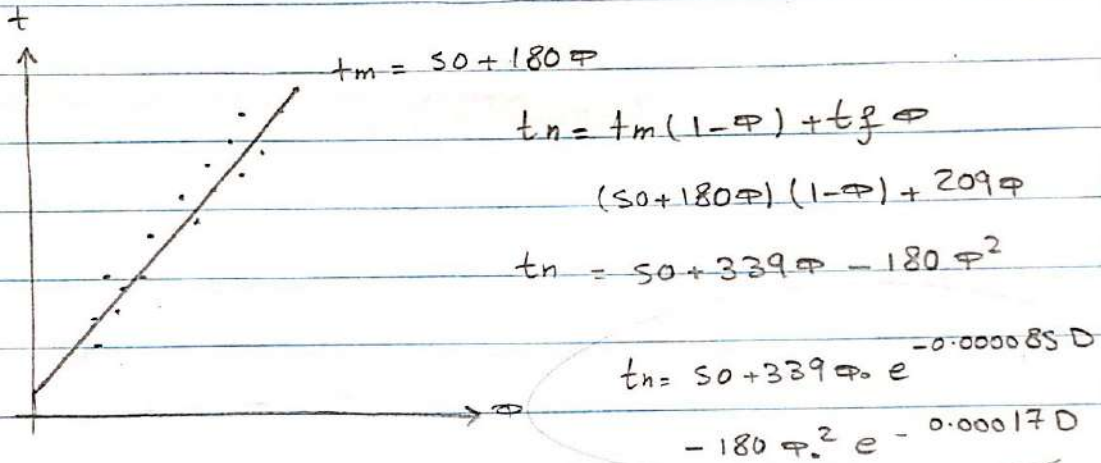 t
tm = 50 + 180 φ
tn = tm (1 - φ) + tf φ
(50 + 180φ) (1 - φ) + 209 φ
tn = 50 + 339 φ - 180 φ²
tn = 50 + 339 φ₀ e^-0.000085 D
- 180 φ₀² e^-0.00017 D
φ